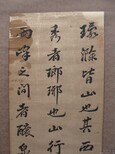 環滁皆山也其西
秀者瑯琊也山行
兩峰之間者釀泉